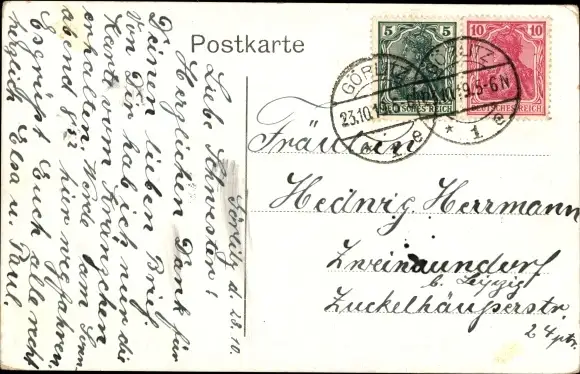 Postkarte
5
10
DEUTSCHES REICH
GÖRLITZ
23.10.19.5-6 N
* 1 e
GÖRLITZ
10.19.5-6 N
* 1 e
Fräulein
Hedwig Herrmann
Zweinaundorf
b. Leipzig
Zuckelhäuserstr.
24 ptr.
Görlitz d. 23.10.
Liebe Schwester!
Herzlichen Dank für
Deinen lieben Brief.
Von Dir hab ich nun die
Karte vom Kränzchen
erhalten. Werde am Sonn-
abend hier weg fahren.
Es grüßt Euch alle recht
herzlich Elsa u. Paul.